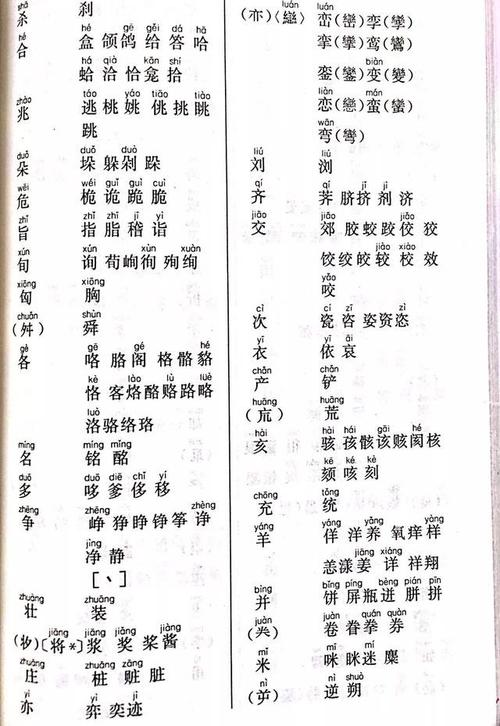 杀 刹
hé hé gé gěi dá hā
合 盒 颌 鸽 给 答 哈
há qià kān shí
蛤 洽 恰 龛 拾
zhào táo yáo tiāo tiào
兆 逃 桃 姚 佻 挑 眺
跳
duǒ duò
朵 垛 躲 剁 跺
wēi wéi guǐ guì cuì
危 桅 诡 跪 脆
zhǐ zhī yì
旨 指 脂 稽 诣
xún xùn xuàn
旬 询 荀 峋 徇 殉 绚
xiōng xiōng
匈 胸
chuǎn shùn
(舛) 舜
gè gē gé hé
各 咯 胳 阁 格 骼 貉
kè lào lù lüè
恪 客 烙 酪 赂 路 略
luò
洛 骆 络 珞
míng míng mǐng
名 铭 酩
duō duō diē chǐ yí
多 哆 爹 侈 移
zhēng zhēng zhèng
争 峥 狰 睁 铮 筝 诤
jìng
净 静
[丶]
zhuàng zhuāng
壮 装
jiāng jiāng jiǎng jiàng
(丬夕)[将*] 浆 奖 桨 酱
zhuāng zhuāng zāng
庄 桩 赃 脏
yì yì jì
亦 弈 奕 迹
luán luán
(亦)〈䜌〉 峦(巒)娈(孌)
孪(孿)鸾(鸞)
biàn
銮(鑾)变(變)
liàn mán
恋(戀)蛮(蠻)
wān
弯(彎)
liú liú
刘 浏
qí jǐ jì
齐 荠 脐 挤 剂 济
jiāo jiāo jiǎo
交 郊 胶 蛟 跤 佼 狡
jiào xiào
饺 绞 皎 较 校 效
yǎo
咬
cì cí zī zì
次 瓷 咨 姿 资 恣
yī āi
衣 依 哀
chǎn chǎn
产 铲
huāng huāng
(巟) 荒
hài hài hái gāi hé
亥 骇 孩 骸 该 赅 阂 核
kē ké kè
颏 咳 刻
chōng tǒng
充 统
yáng yáng yǎng yàng
羊 佯 洋 养 氧 痒 样
jiāng xiáng
恙 漾 姜 详 祥 翔
bìng bǐng píng bèng pián pīn
并 饼 屏 瓶 迸 胼 拼
juàn quán quàn
(龹) 卷 眷 拳 券
mǐ mī mí
米 咪 眯 迷 麋
nì nì shuò
(屰) 逆 朔